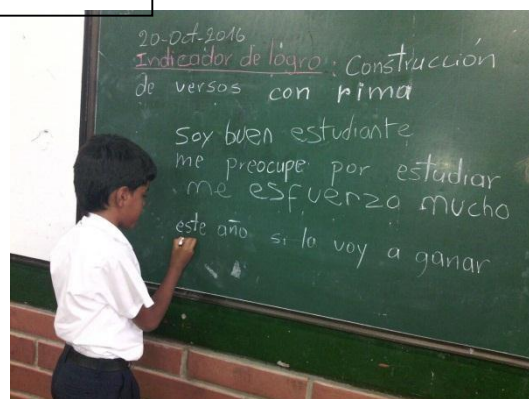 20-Oct-2016
Indicador de lógro: Construcción
de versos con rima
Soy buen estudiante
me preocupe por estudiar
me esfuerzo mucho
este año si lo voy a ganar